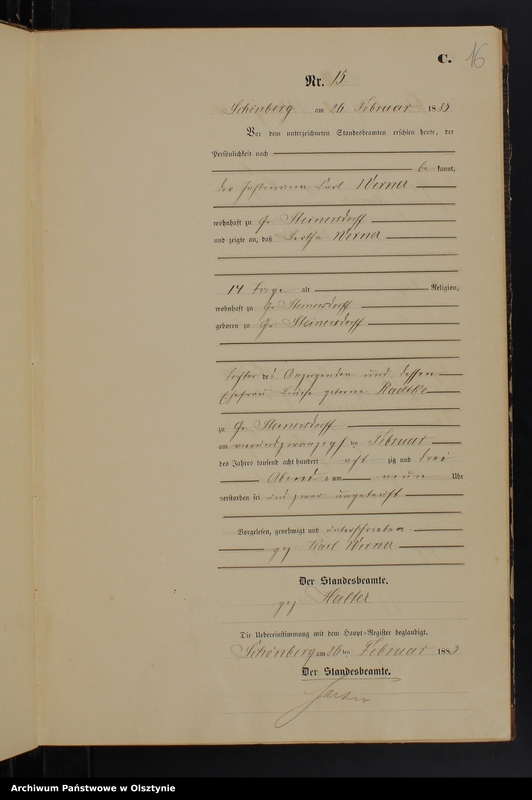 C. 16
Nr. 15
Schönberg am 26 Februar 1883
Vor dem unterzeichneten Standesbeamten erschien heute, der
Persönlichkeit nach
be kannt,
der Carl Werner
wohnhaft zu Gr Steinersdorff
und zeigte an, daß Bertha Werner
14 Tage alt Religion,
wohnhaft zu Gr Steinersdorff
geboren zu Gr Steinersdorff
Tochter des Anzeigenden und dessen
Ehefrau Louise geborene Radtke
zu Gr Steinersdorff
am vierundzwanzigst en Februar
des Jahres tausend acht hundert acht zig und drei
Abends um neun Uhr
verstorben sei und zwar ungetauft
Vorgelesen, genehmigt und unterschrieben.
gez Karl Werner
Der Standesbeamte.
gez
Die Uebereinstimmung mit dem Haupt-Register beglaubigt.
Schönberg am 26 ten Februar 1883
Der Standesbeamte.
Archiwum Państwowe w Olsztynie